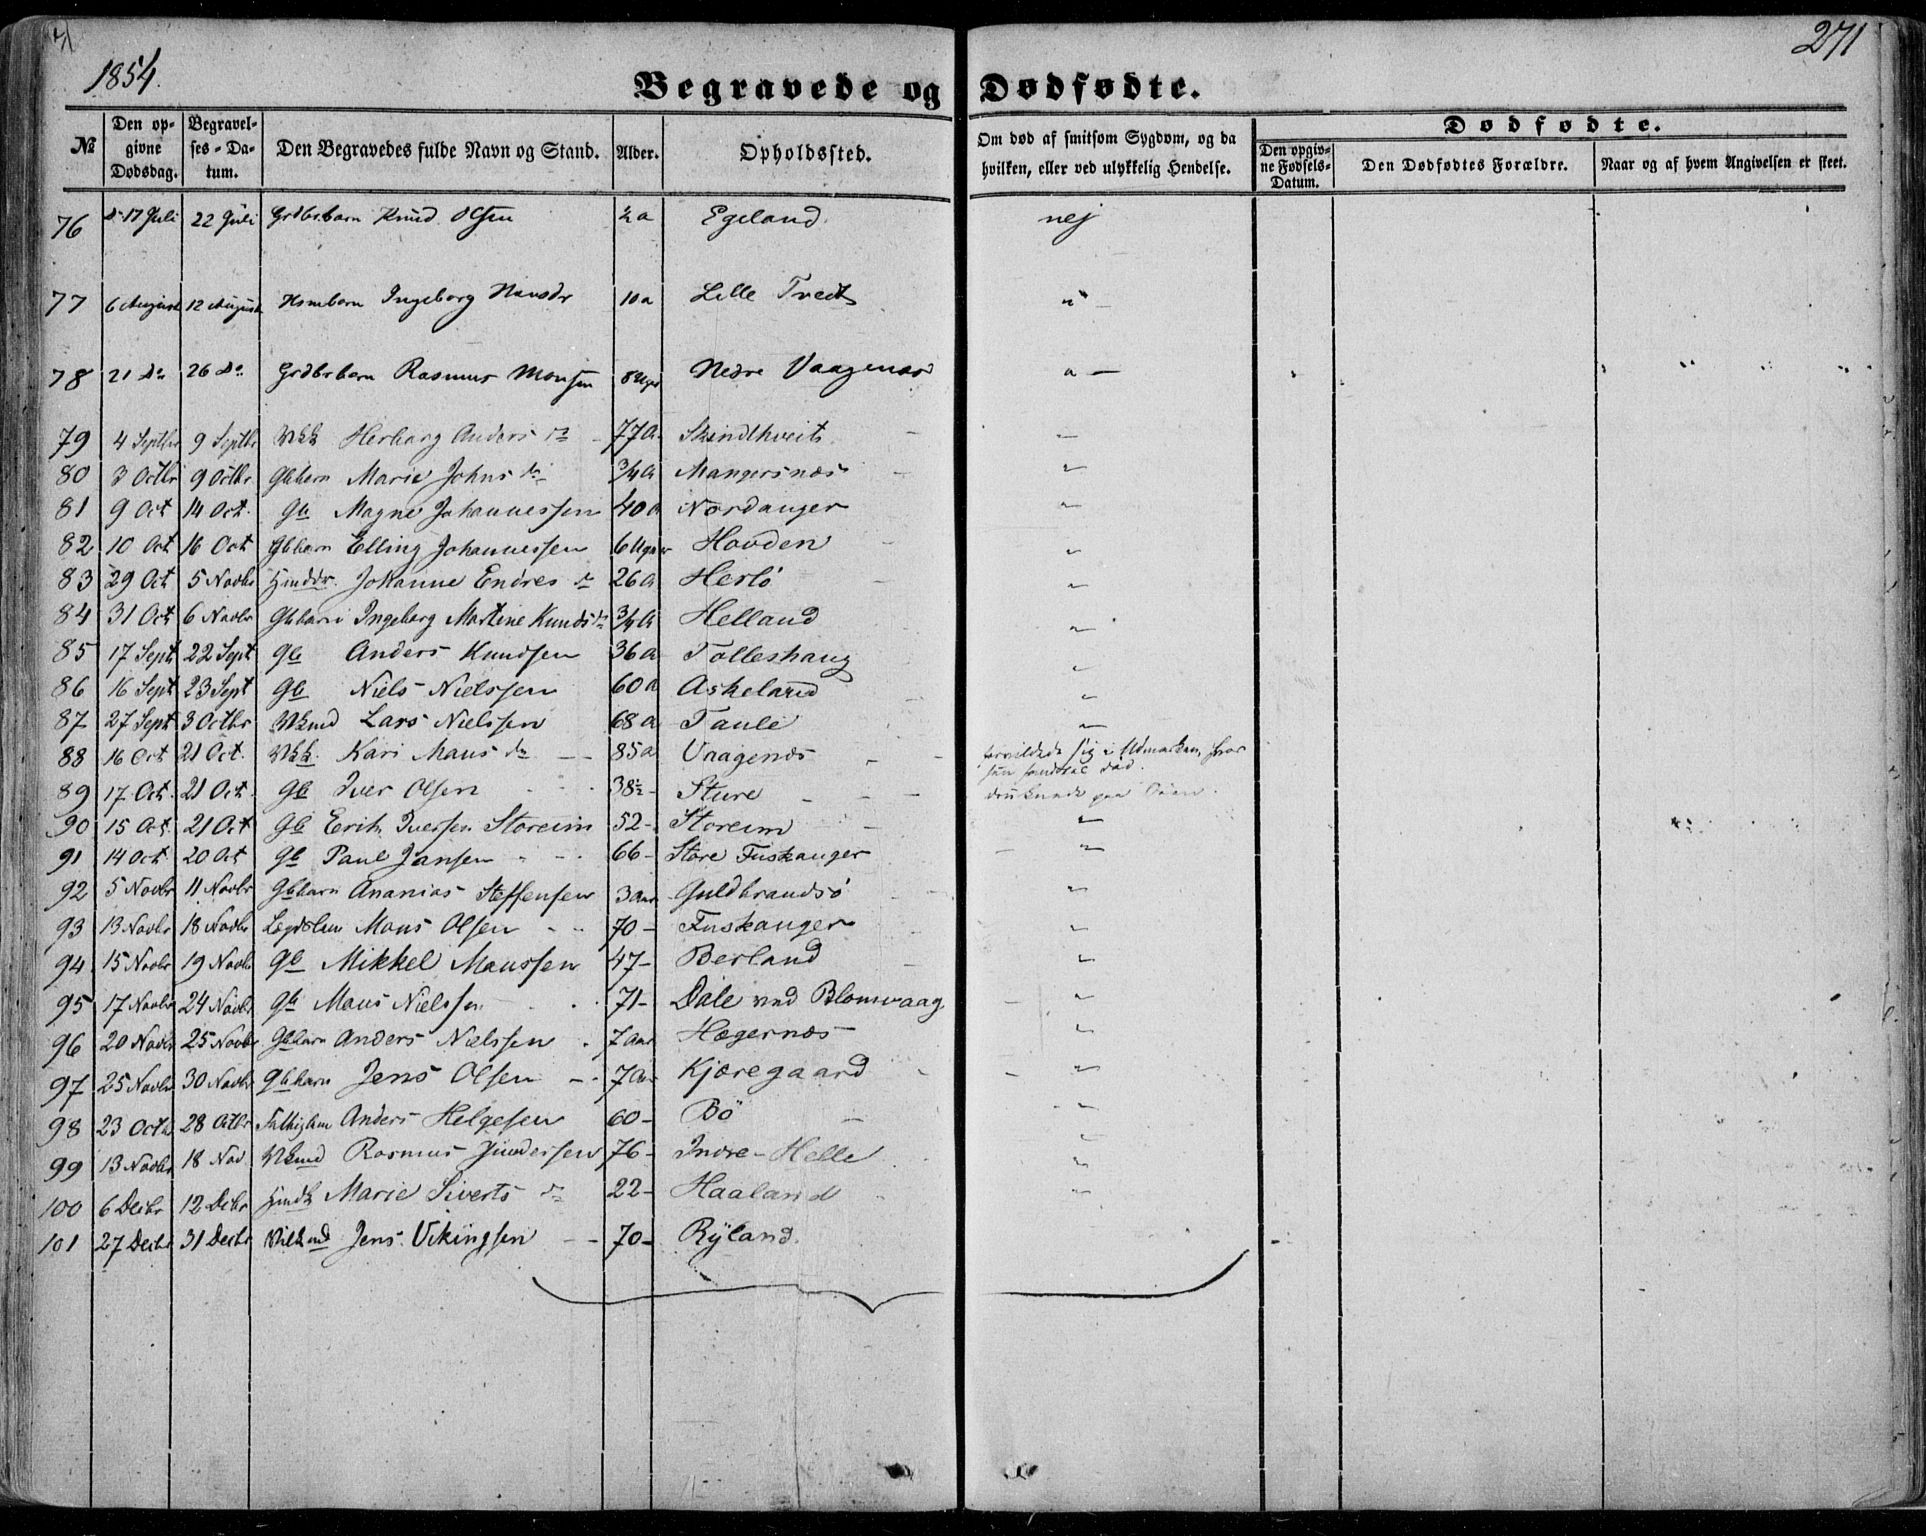 1854.
271
Begravede og Dødfødte.
№
Den opgivne Dødsdag.
Begravelses-Datum.
Den Begravedes fulde Navn og Stand.
Alder.
Opholdssted.
Om død af smitsom Sygdom, og da hvilken, eller ved ulykkelig Hendelse.
Dødfødte.
Den opgivne Fødsels-Datum.
Den Dødfødtes Forældre.
Naar og af hvem Angivelsen er skeet.
76 17 Juli 22 Juli Grdbrbarn Knud Olsen ½ a Egeland nej
77 6 August 12 August Hsmbarn Ingeborg Hansdr 10 a Lille Tveit " —
78 21 Do 26 Do Grdbrbarn Rasmus Monsen 8 Uger Nedre Vaagenæs " —
79 4 Septbr 9 Septbr Herborg Anders dr 77 a Skindthveit "
80 3 Octbr 9 Octbr. Gbbarn Marie Johns dr ¾ a Mangersnæs "
81 9 Oct 14 Oct. Gb Magne Johannessen 40 a Nordanger "
82 10 Oct 16 Oct Gbbarn Elling Johannessen 6 Uger Hovden "
83 29 Oct 5 Novbr Johanne Endres dr 26 a Herlö "
84 31 Oct 6 Novbr Gbbarn Ingeborg Martine Knuds dr ¾ a Helland "
85 17 Sept 22 Sept Gb Anders Knudsen 36 a Tolleshaug "
86 16 Sept 23 Sept Gb Niels Nielssen 60 a Askeland "
87 27 Sept 3 Octbr Vkmd Lars Nielssen 68 a Taule "
88 16 Oct 21 Oct. Vkk. Kari Mans dr — — 85 a Vaagenæs forvildede sig i Udmarken, hvor
hun fandtes død.
89 17 Oct. 21 Oct. Gb Iver Olsen 38½ - Sture druknede paa Søen.
90 15 Oct. 21 Oct Gb Eerik Iversen Storeim 52 - Storeim "
91 14 Oct 20 Oct Gb Paul Jansen 66 - Store Fuskanger "
92 5 Novbr 11 Novbr Gbbarn Ananias Steffensen 3 Aar Guldbrandsö "
93 13 Novbr 18 Novbr Lægdslem Mons Olsen 70 - Fuskanger "
94 15 Novbr 19 Novbr Gb Mikkel Monssen 47 - Berland "
95 17 Novbr 24 Novbr Gb Mons Nielssen 71 - Dale ved Blomvaag "
96 20 Novbr 25 Novbr Gbbarn Anders Nielssen 7 Aar Hægernæs "
97 25 Novbr 30 Novbr Gbbarn Jens Olsen 7 Aar Kjæregaard "
98 23 Octbr 28 Octbr Fattiglem Anders Helgesen 60 - Bö "
99 13 Novbr 18 Nov Vkmd Rasmus 76 - Indre-Helle "
100 6 Decbr 12 Decbr Marie Siverts dr 22 - Haaland "
101 27 Decbr 31 Decbr Jens Vikingsen 70 - Ryland.